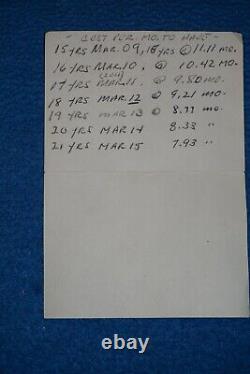 - COST PUR. MO. TO HAVE -
15 YRS MAR. 09, 15 YRS @ 11.11 MO.
16 YRS MAR. 10, @ 10.42 MO.
(2011)
17 YRS MAR. 11, @ 9.80 MO.
18 YRS MAR. 12 @ 9.21 MO.
19 YRS MAR 13 @ 8.77 MO.
20 YRS MAR 14 8.33 "
21 YRS MAR 15 7.93 "